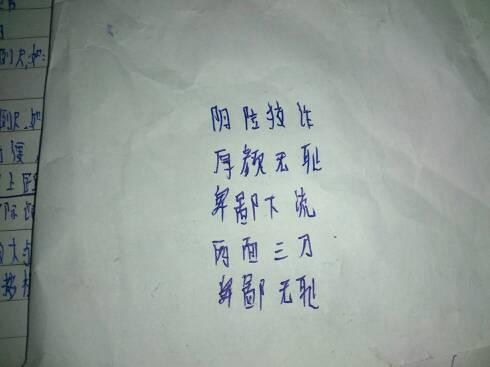 阴险狡诈
厚颜无耻
卑鄙下流
两面三刀
卑鄙无耻